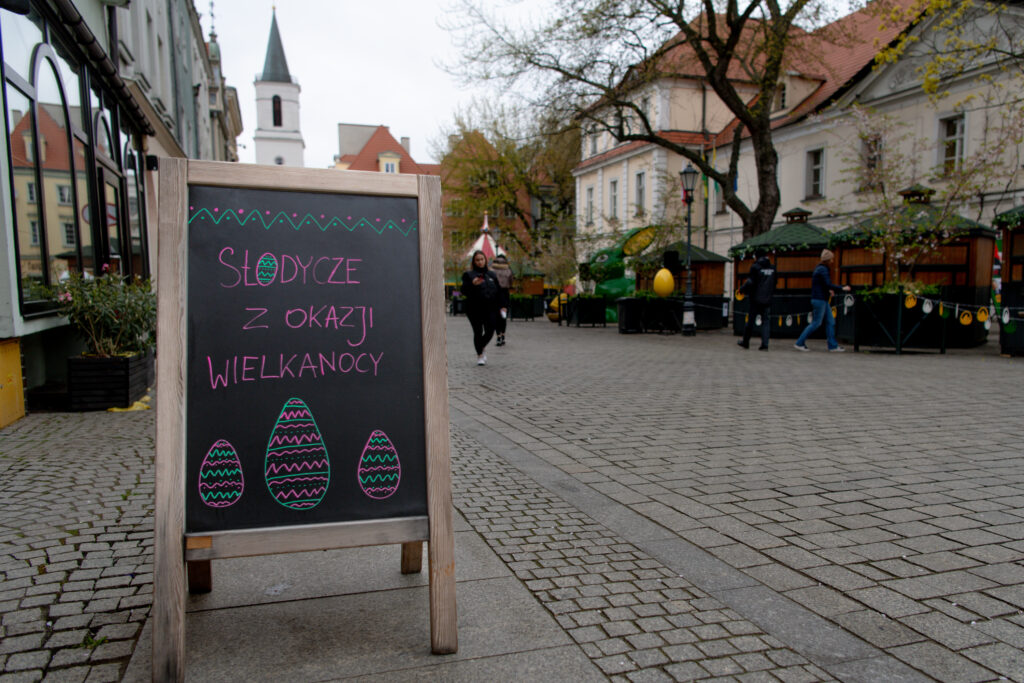 SŁODYCZE
Z OKAZJI
WIELKANOCY